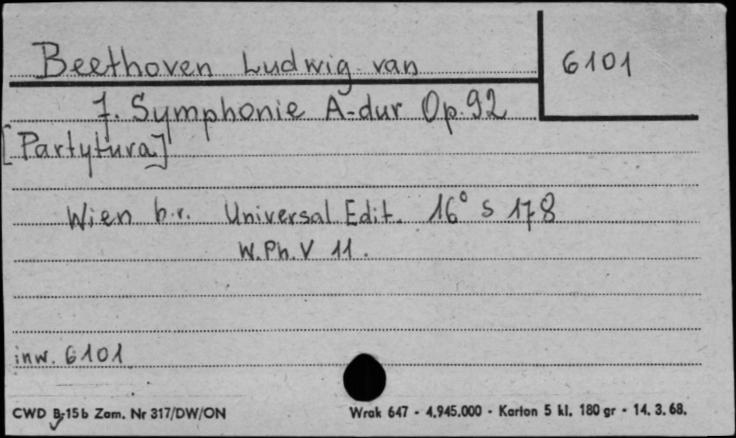 Beethoven Ludwig van
6101
7. Symphonie A-dur Op. 92
[Partytura]
Wien b.r. Universal Edit. 16° s 178
W.Ph.V 11.
inw. 6101
CWD B-15b Zam. Nr 317/DW/ON
Wrak 647 - 4.945.000 - Karton 5 kl. 180 gr - 14. 3. 68.